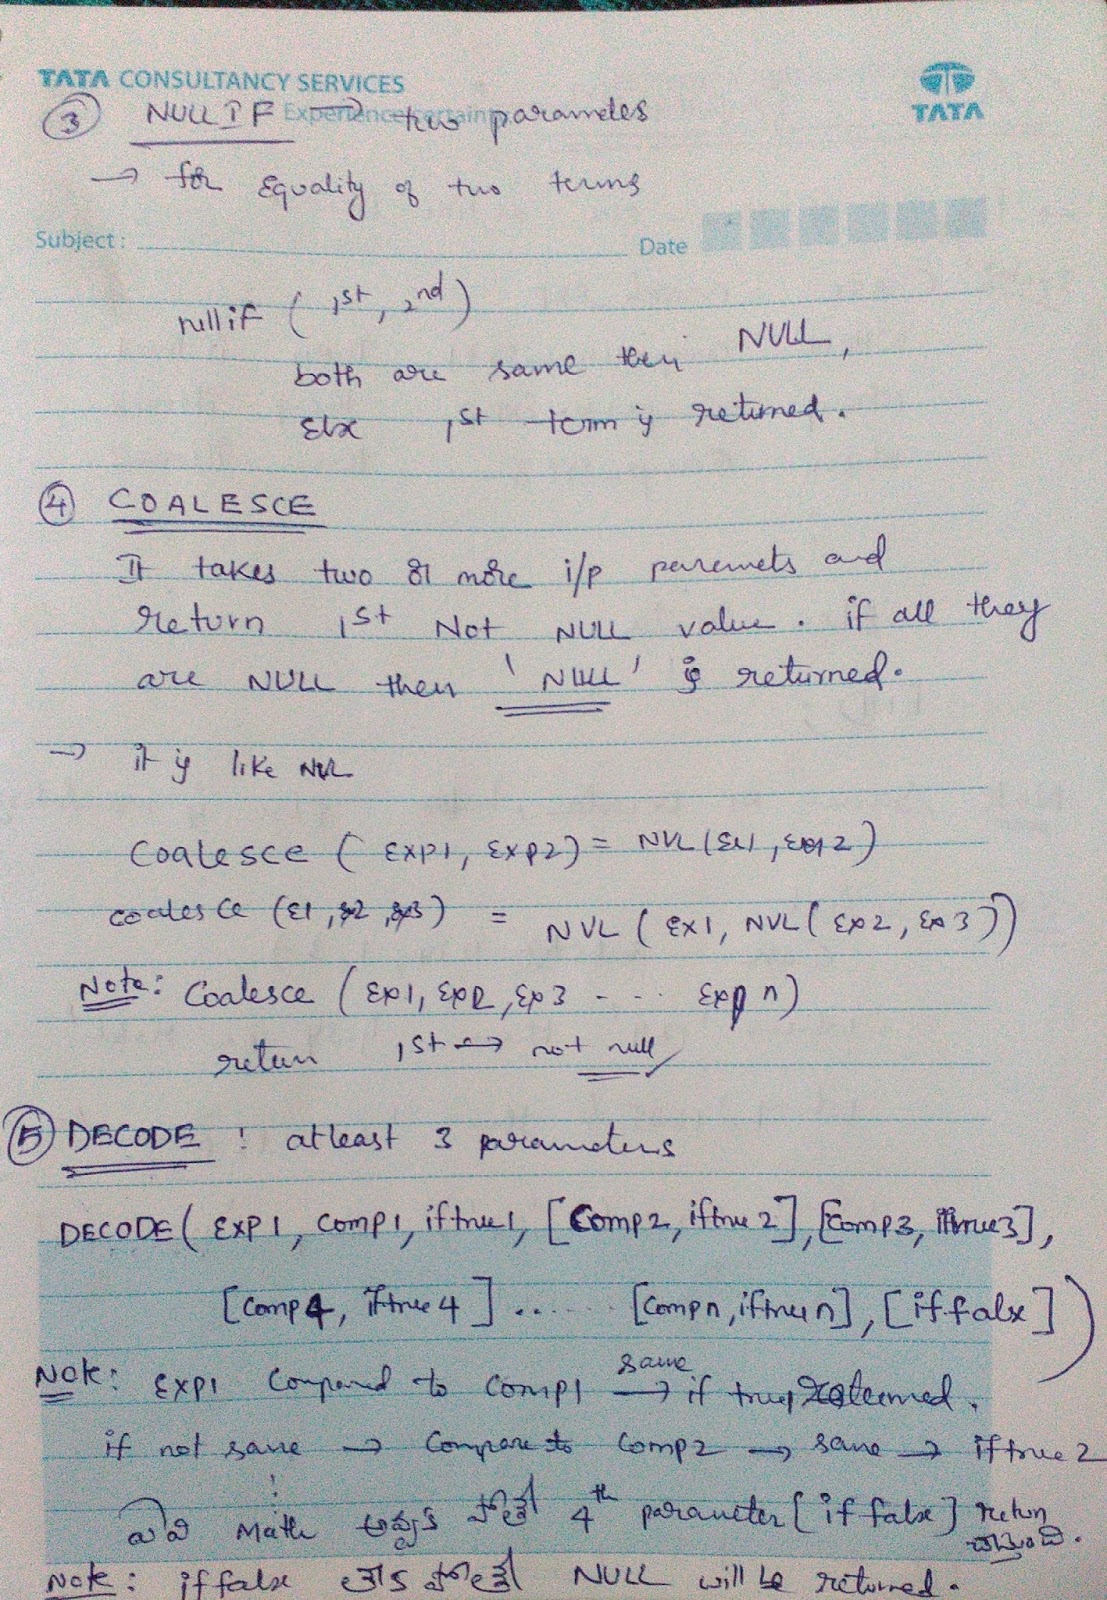 TATA CONSULTANCY SERVICES
TATA
③ NULLIF → two parameters
→ for Equality of two terms
Subject : Date
nullif ( 1st, 2nd )
both are same then NULL,
Else 1st term is returned.
④ COALESCE
It takes two or more i/p paremets and
return 1st Not NULL value. if all they
are NULL then 'NULL' is returned.
→ it is like NVL
Coalesce ( EXP1, EXP2) = NVL (Ex1, Exp2)
coalesce (E1, E2, E3) = NVL ( EX1, NVL ( EXP2, Exp3 ))
Note: Coalesce (Exp1, EXP2, Exp3 - ... Exp n)
return 1st → not null
⑤ DECODE : atleast 3 parameters
DECODE ( EXP1, comp1, iftrue1, [Comp2, iftrue2], [Comp3, iftrue3],
[Comp4, iftrue4] ...... [Compn, iftruen], [if false] )
Note: EXP1 Compared to Comp1 same → if true returned.
if not same → Compare to Comp2 → same → iftrue2
Math 4th parameter [if false] return
Note: if false NULL will be returned.